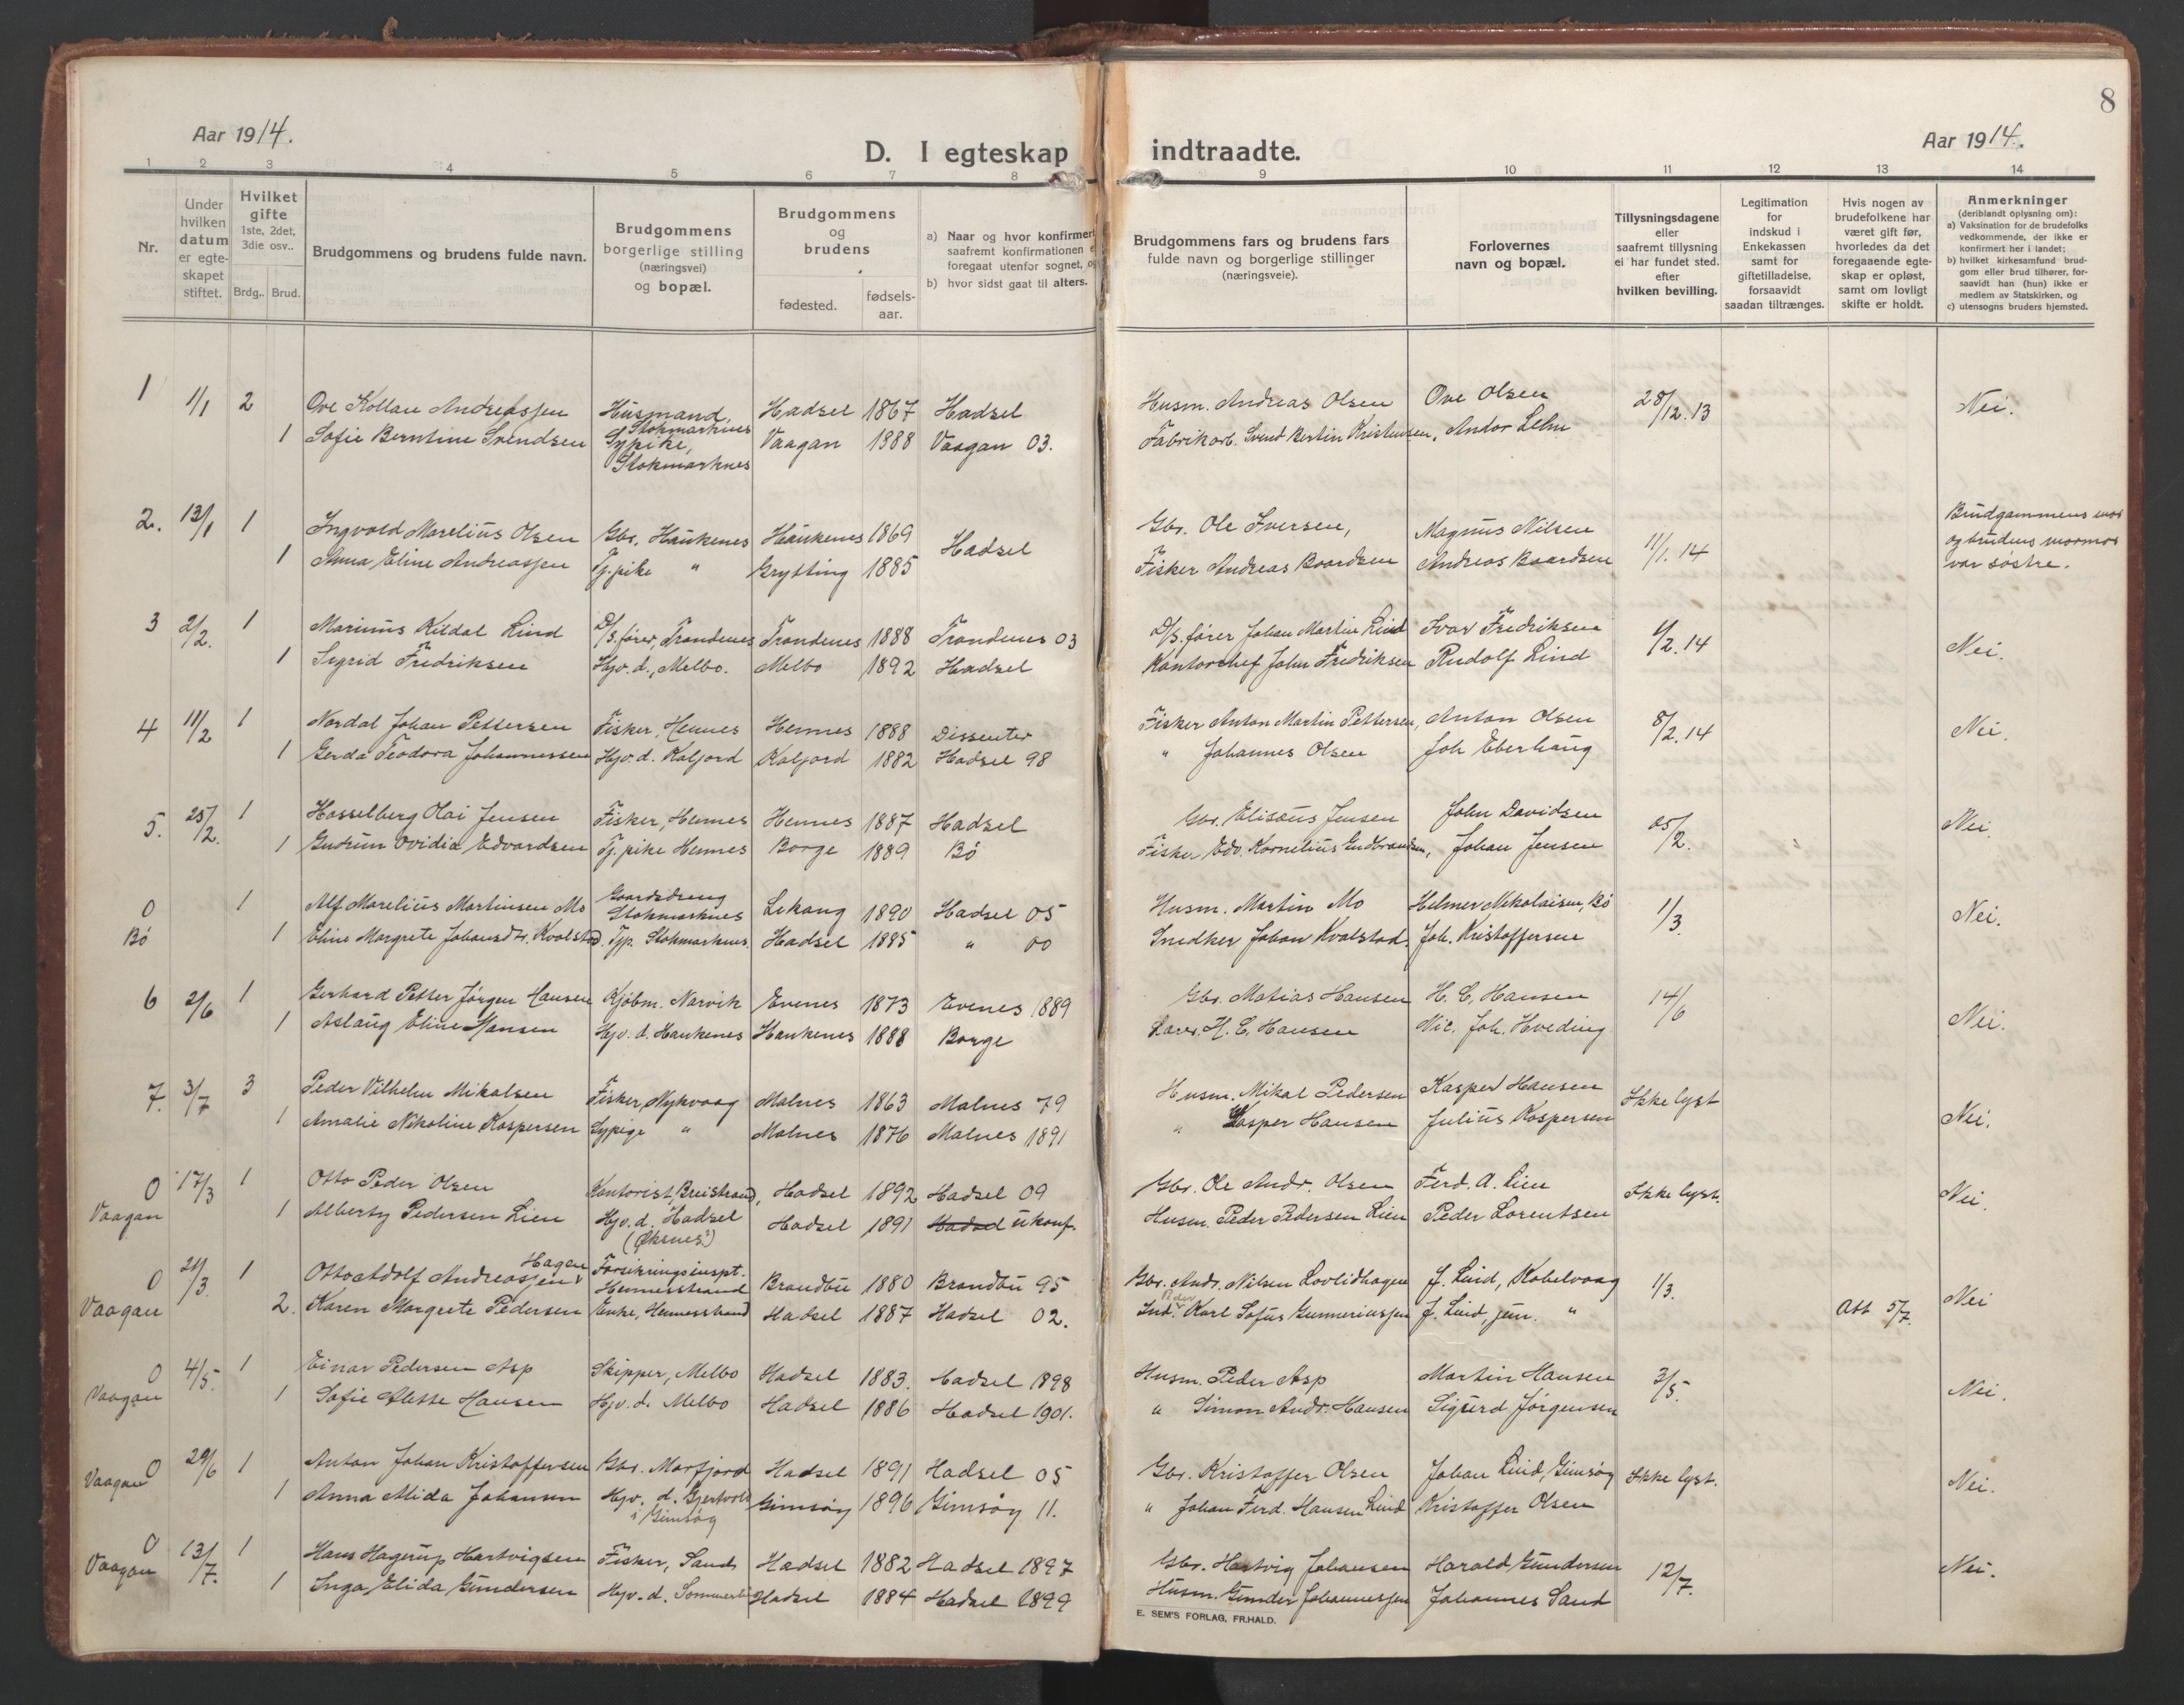 8
Aar 1914.
D. I egteskap indtraadte.
Aar 1914.
1 2 3 4 5 6 7 8 9 10 11 12 13 14
Nr.
Under hvilken datum er egte-skapet stiftet.
Hvilket gifte 1ste, 2det, 3die osv..
Brdg.. Brud.
Brudgommens og brudens fulde navn.
Brudgommens borgerlige stilling (næringsvei) og bopæl.
Brudgommens og brudens
fødested. fødsels-aar.
a) Naar og hvor konfirmert saafremt konfirmationen foregaat utenfor sognet, og
b) hvor sidst gaat til alters.
Brudgommens fars og brudens fars fulde navn og borgerlige stillinger (næringsveie).
Forlovernes navn og bopæl.
Tillysningsdagene eller saafremt tillysning ei har fundet sted. efter hvilken bevilling.
Legitimation for indskud i Enkekassen samt for giftetilladelse, forsaavidt saadan tiltrænges.
Hvis nogen av brudefolkene har været gift før, hvorledes da det foregaaende egte-skap er opløst, samt om lovligt skifte er holdt.
Anmerkninger (deriblandt oplysning om):
a) Vaksination for de brudefolks vedkommende, der ikke er konfirmert her i landet;
b) hvilket kirkesamfund brud-gom eller brud tilhører, for-saavidt han (hun) ikke er medlem av Statskirken, og
c) utensogns bruders hjemsted.
1 1/1 2 Ove Kollau Andreassen Husmand, Stokmarknes Hadsel 1867 Hadsel Husm. Andreas Olsen Ove Olsen 28/12.13 Nei.
1 Sofie Berntine Svendsen Sypike, Stokmarknes Vaagan 1888 Vaagan 03. Fabrikarb. Svend Bertin Kristensen, Andor Lehn
2. 13/1 1 Ingvold Marelius Olsen Gbr. Haukenes Haukenes 1869 Hadsel Gbr. Ole Iversen, Magnus Nilsen 11/1.14 Brudgammens mor og brudens mormor var søstre.
1 Anna Eline Andreassen Tj.pike " Grytting 1885 Fisker Andreas Baardsen Andreas Baardsen
3 2/2. 1 Marinus Kildal Lind D/S. fører, Trondenes Trondenes 1888 Trondenes 03 D/S. fører Johan Martin Lind Ivar Fredriksen 1/2.14 Nei.
1 Sigrid Fredriksen Hjv. d., Melbo. Melbo 1892 Hadsel Kontorchef John Fredriksen Rudolf Lind
4 11/2 1 Nordal Johan Pettersen Fisker, Hennes Hennes 1888 Dissenter Fisker Anton Martin Pettersen, Anton Olsen 8/2.14 Nei.
1 Gerda Teodora Johannessen Hjv. d. Kaljord Kaljord 1882 Hadsel 98 " Johannes Olsen Joh Eberhaug
5. 25/2. 1 Hasselberg Olai Jensen Fisker, Hennes Hennes 1887 Hadsel Gbr. Elisæus Jensen John Davidsen 25/2. Nei.
1 Gudrun Ovidia Edvardsen Tj. pike Hennes Borge 1889 Bø Fisker Edv. Kornelius Gudbrandsen, Johan Jensen
0 Bø 1 Alf Marelius Martinsen Mo Gaardsdreng Stokmarknes Lekang 1890 Hadsel 05 Husm. Martin Mo Helmer Nikolaisen, Bø 1/3. Nei.
1 Eline Margrete Johansdtr. Kvalstad Tjp. Stokmarknes. Hadsel 1885 " 00 Snedker Johan Kvalstad. Joh. Kristoffersen
6 21/6 1 Gerhard Petter Jørgen Hansen Kjøbm. Narvik Evenes 1873 Evenes 1889 Gbr. Matias Hansen H. C. Hansen 14/6 Nei.
1 Aslaug Eline Hansen Hjv. d. Haukenes Haukenes 1888 Borge Lærer H. C. Hansen Nic. Joh. Hveding
7. 3/7 3 Peder Vilhelm Mikalsen Fisker, Nykvaag Malnes 1863 Malnes 79 Husm. Mikal Pedersen Kasper Hansen Ikke lyst Nei.
1 Amalie Nikoline Kaspersen Sypige " Malnes 1876 Malnes 1891 " Kasper Hansen Julius Kaspersen
0 Vaagan 17/3 1 Otto Peder Olsen Kontorist, Breistrand, Hadsel 1892 Hadsel 09 Gbr. Ole Andr. Olsen Ferd. A. Lien Ikke lyst. Nei.
1 Alberty Pedersen Lien Hjv. d. Hadsel (Øksnes?) Hadsel 1891 Hadsel ukonf. Husm. Peder Pedersen Lien Peder Lorentsen
0 Vaagan 21/3. 1 Otto Adolf Andreassen Hagen Forsikringsinspt. Hennesstrand Brandbu 1880 Brandbu 95 Gbr. Andr. Nilsen Lovlidhagen J. Lind, Kabelvaag 1/3. Nei
2. Karen Margrete Pedersen Enke, Hennesstrand Hadsel 1887 Hadsel 02. Ind. Peder Karl Sofus Gunneriussen J. Lind, jun. " Att 5/7.
0 Vaagan 4/5. 1 Einar Pedersen Asp Skipper, Melbo Hadsel 1883. Hadsel 1898 Husm. Peder Asp Martin Hansen 3/5 Nei.
1 Sofie Alette Hansen Hjv. d. Melbo Hadsel 1886 Hadsel 1901. " Simon Andr. Hansen Sigurd Jørgensen
0 Vaagan 29/6 1 Anton Johan Kristoffersen Gbr. Morfjord Hadsel 1891 Hadsel 05 Gbr. Kristoffer Olsen Johan Lind, Gimsøy Ikke lyst. Nei.
1 Anna Alida Johansen Hjv. d. Gjertvold i Gimsøy Gimsøy 1896 Gimsøy 11. " Johan Ferd. Hansen Lind Kristoffer Olsen
0 Vaagan 13/7. 1 Hans Hagerup Hartvigsen Fisker, Sand Hadsel 1882 Hadsel 1897 Gbr. Hartvig Johansen Harald Gundersen 12/7. Nei.
1 Inga Elida Gundersen Hjv. d. Hadsel 1884 Hadsel 1899 Husm. Gunder Johannessen Johannes Sand
E. SEM'S FORLAG, FR.HALD.